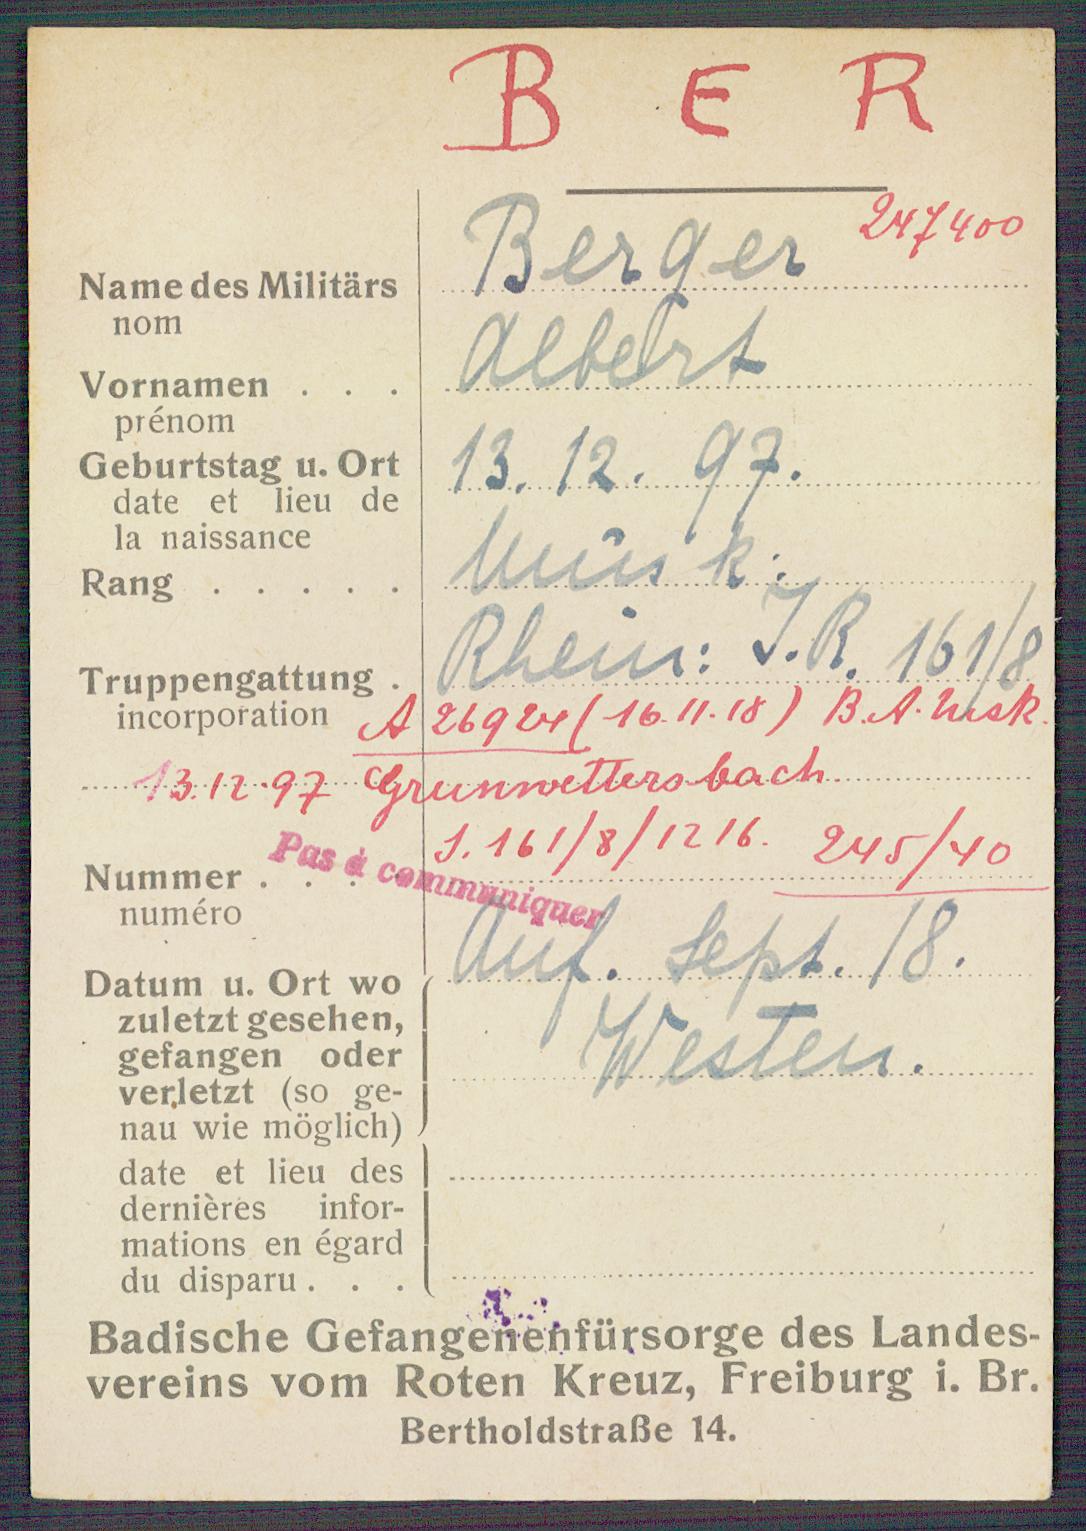 B E R
247400
Name des Militärs Berger
nom
Vornamen . . . Albert
prénom
Geburtstag u. Ort 13. 12. 97.
date et lieu de
la naissance
Rang . . . . . Musk.
Rhein: I.R. 161/8
Truppengattung .
incorporation A 26924 (16.11.18) B.A. Musk.
13.12.97 Grunwettersbach
I. 161/8/1216. 245/40
Pas à communiquer
Nummer . . . .
numéro
Anf. Sept. 18.
Datum u. Ort wo
zuletzt gesehen,
gefangen oder Westen.
verletzt (so ge-
nau wie möglich)
date et lieu des
dernières infor-
mations en égard
du disparu . . .
Badische Gefangenenfürsorge des Landes-
vereins vom Roten Kreuz, Freiburg i. Br.
Bertholdstraße 14.